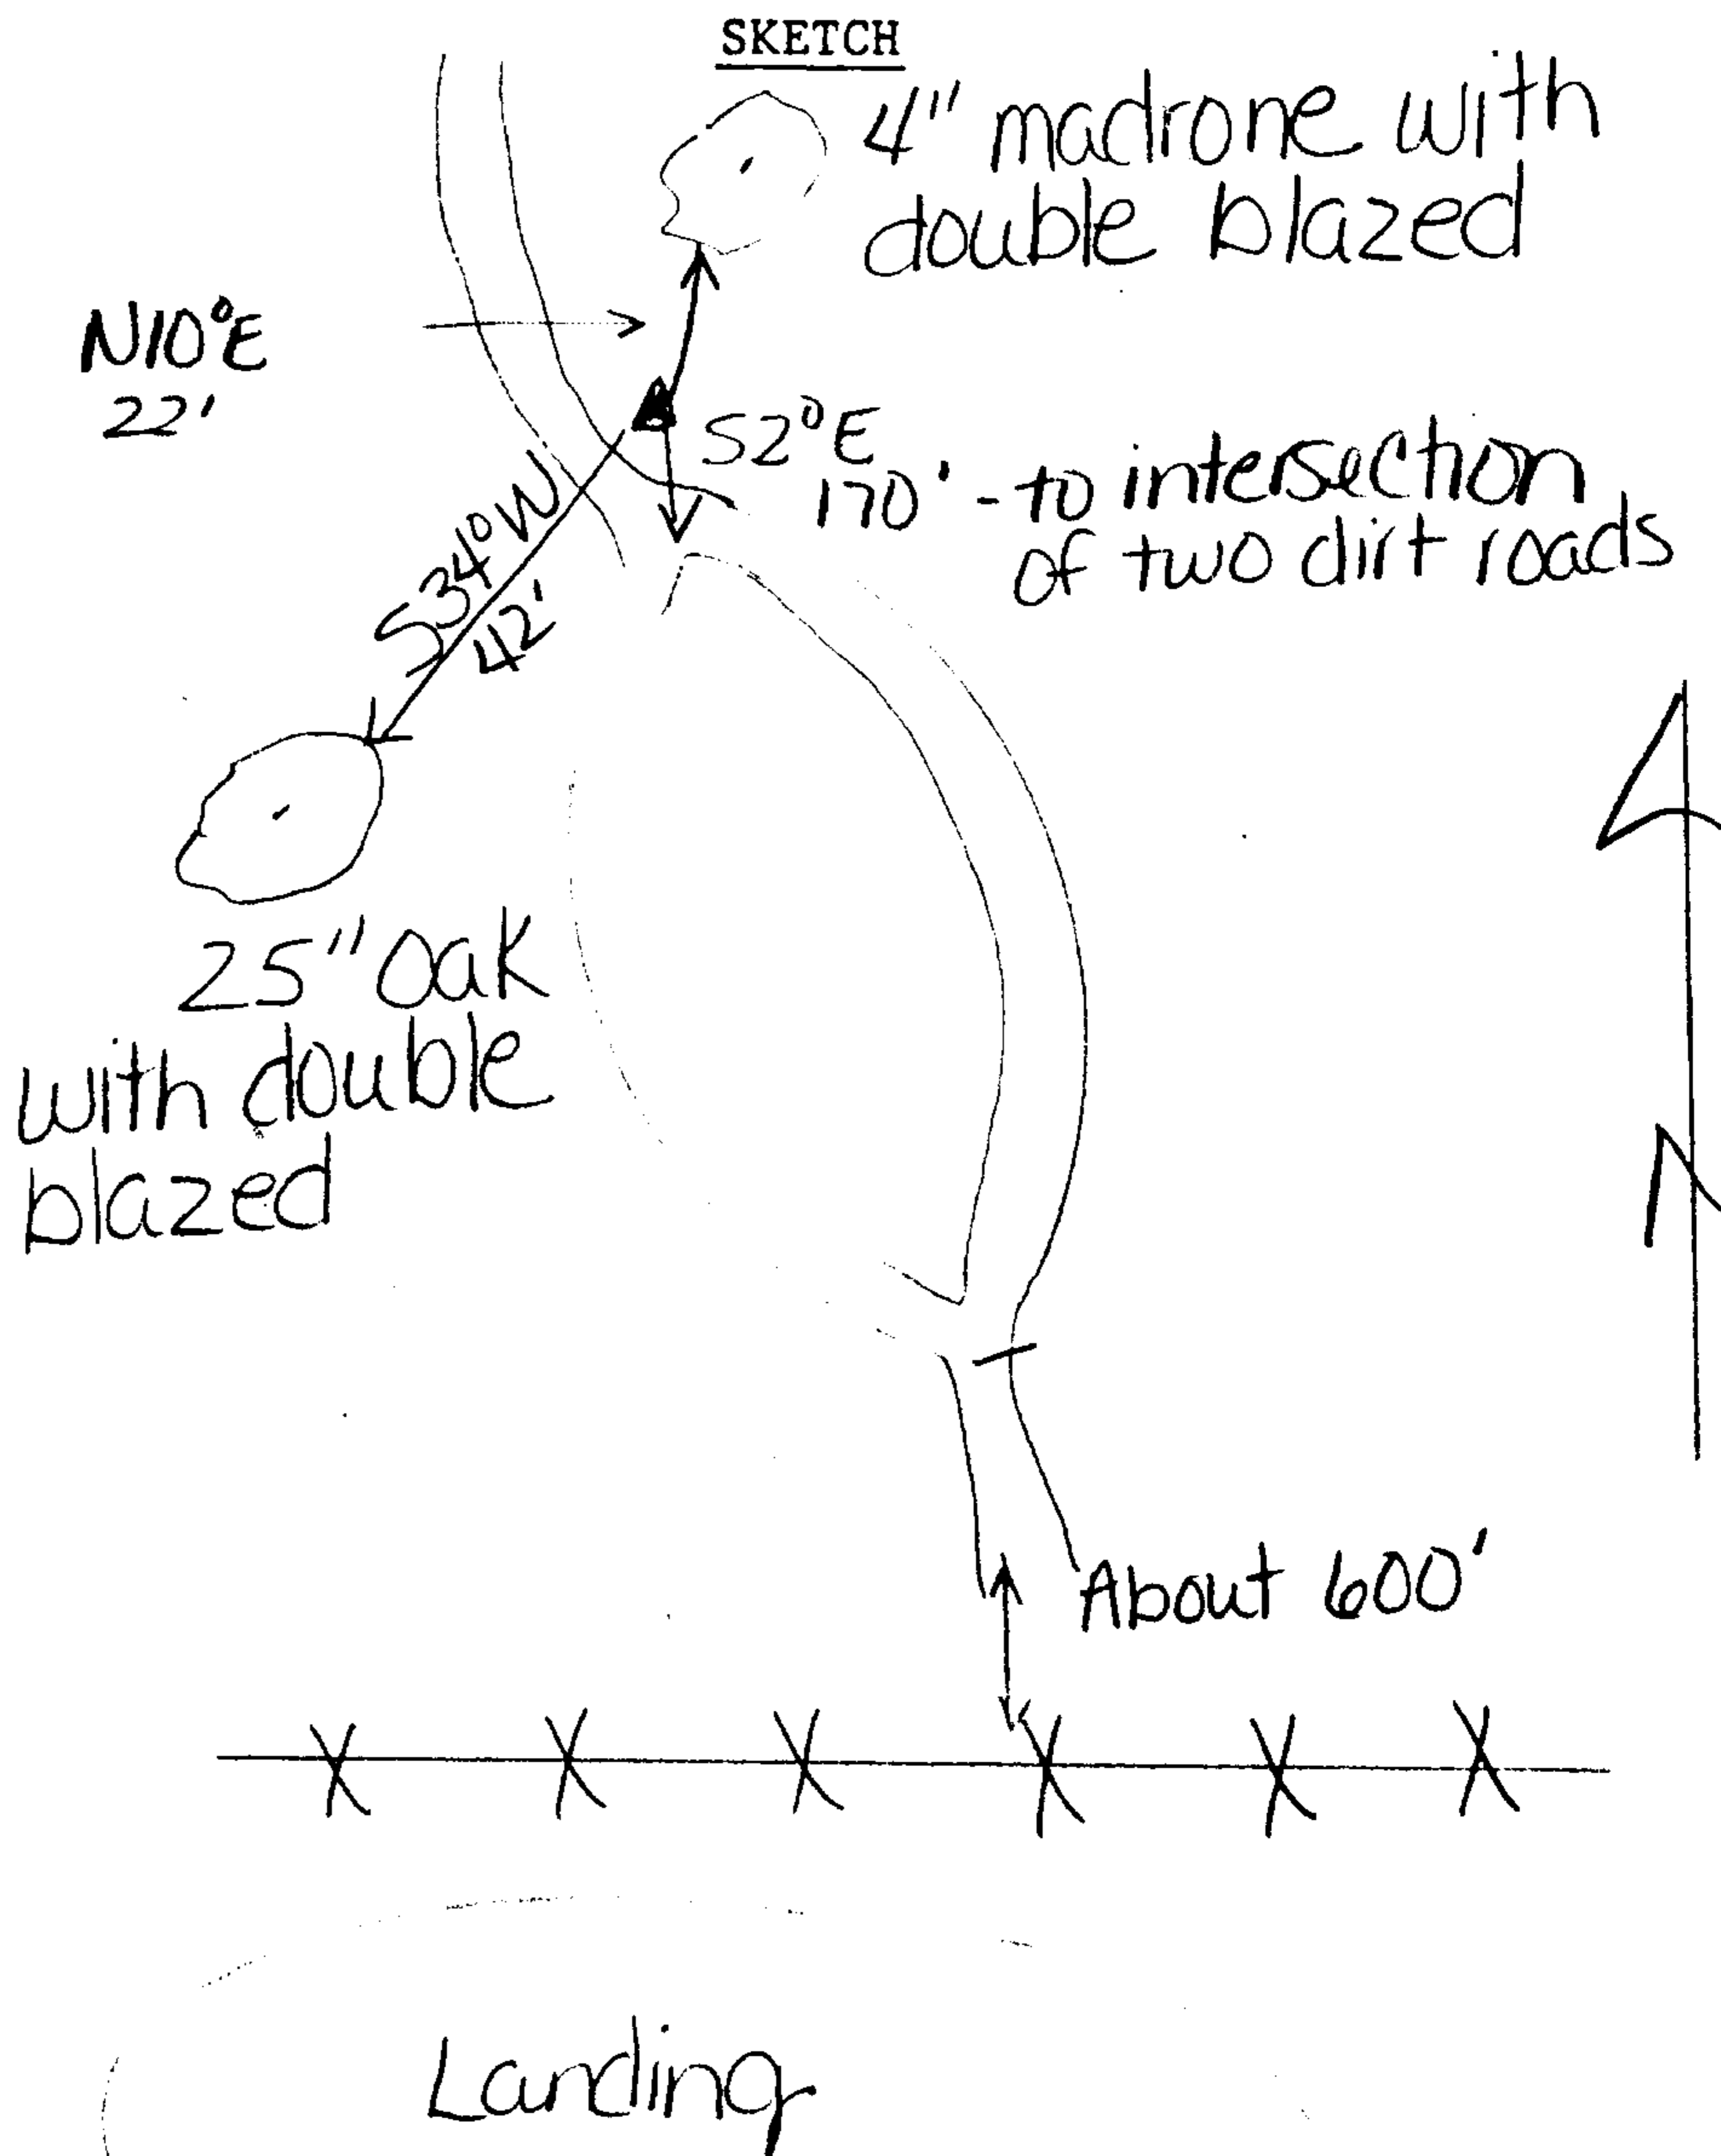 SKETCH
4" madrone with
double blazed
N10°E
22'
S2°E
170' - to intersection
of two dirt roads
S34°W
42'
25" Oak
with double
blazed
N
About 600'
Landing